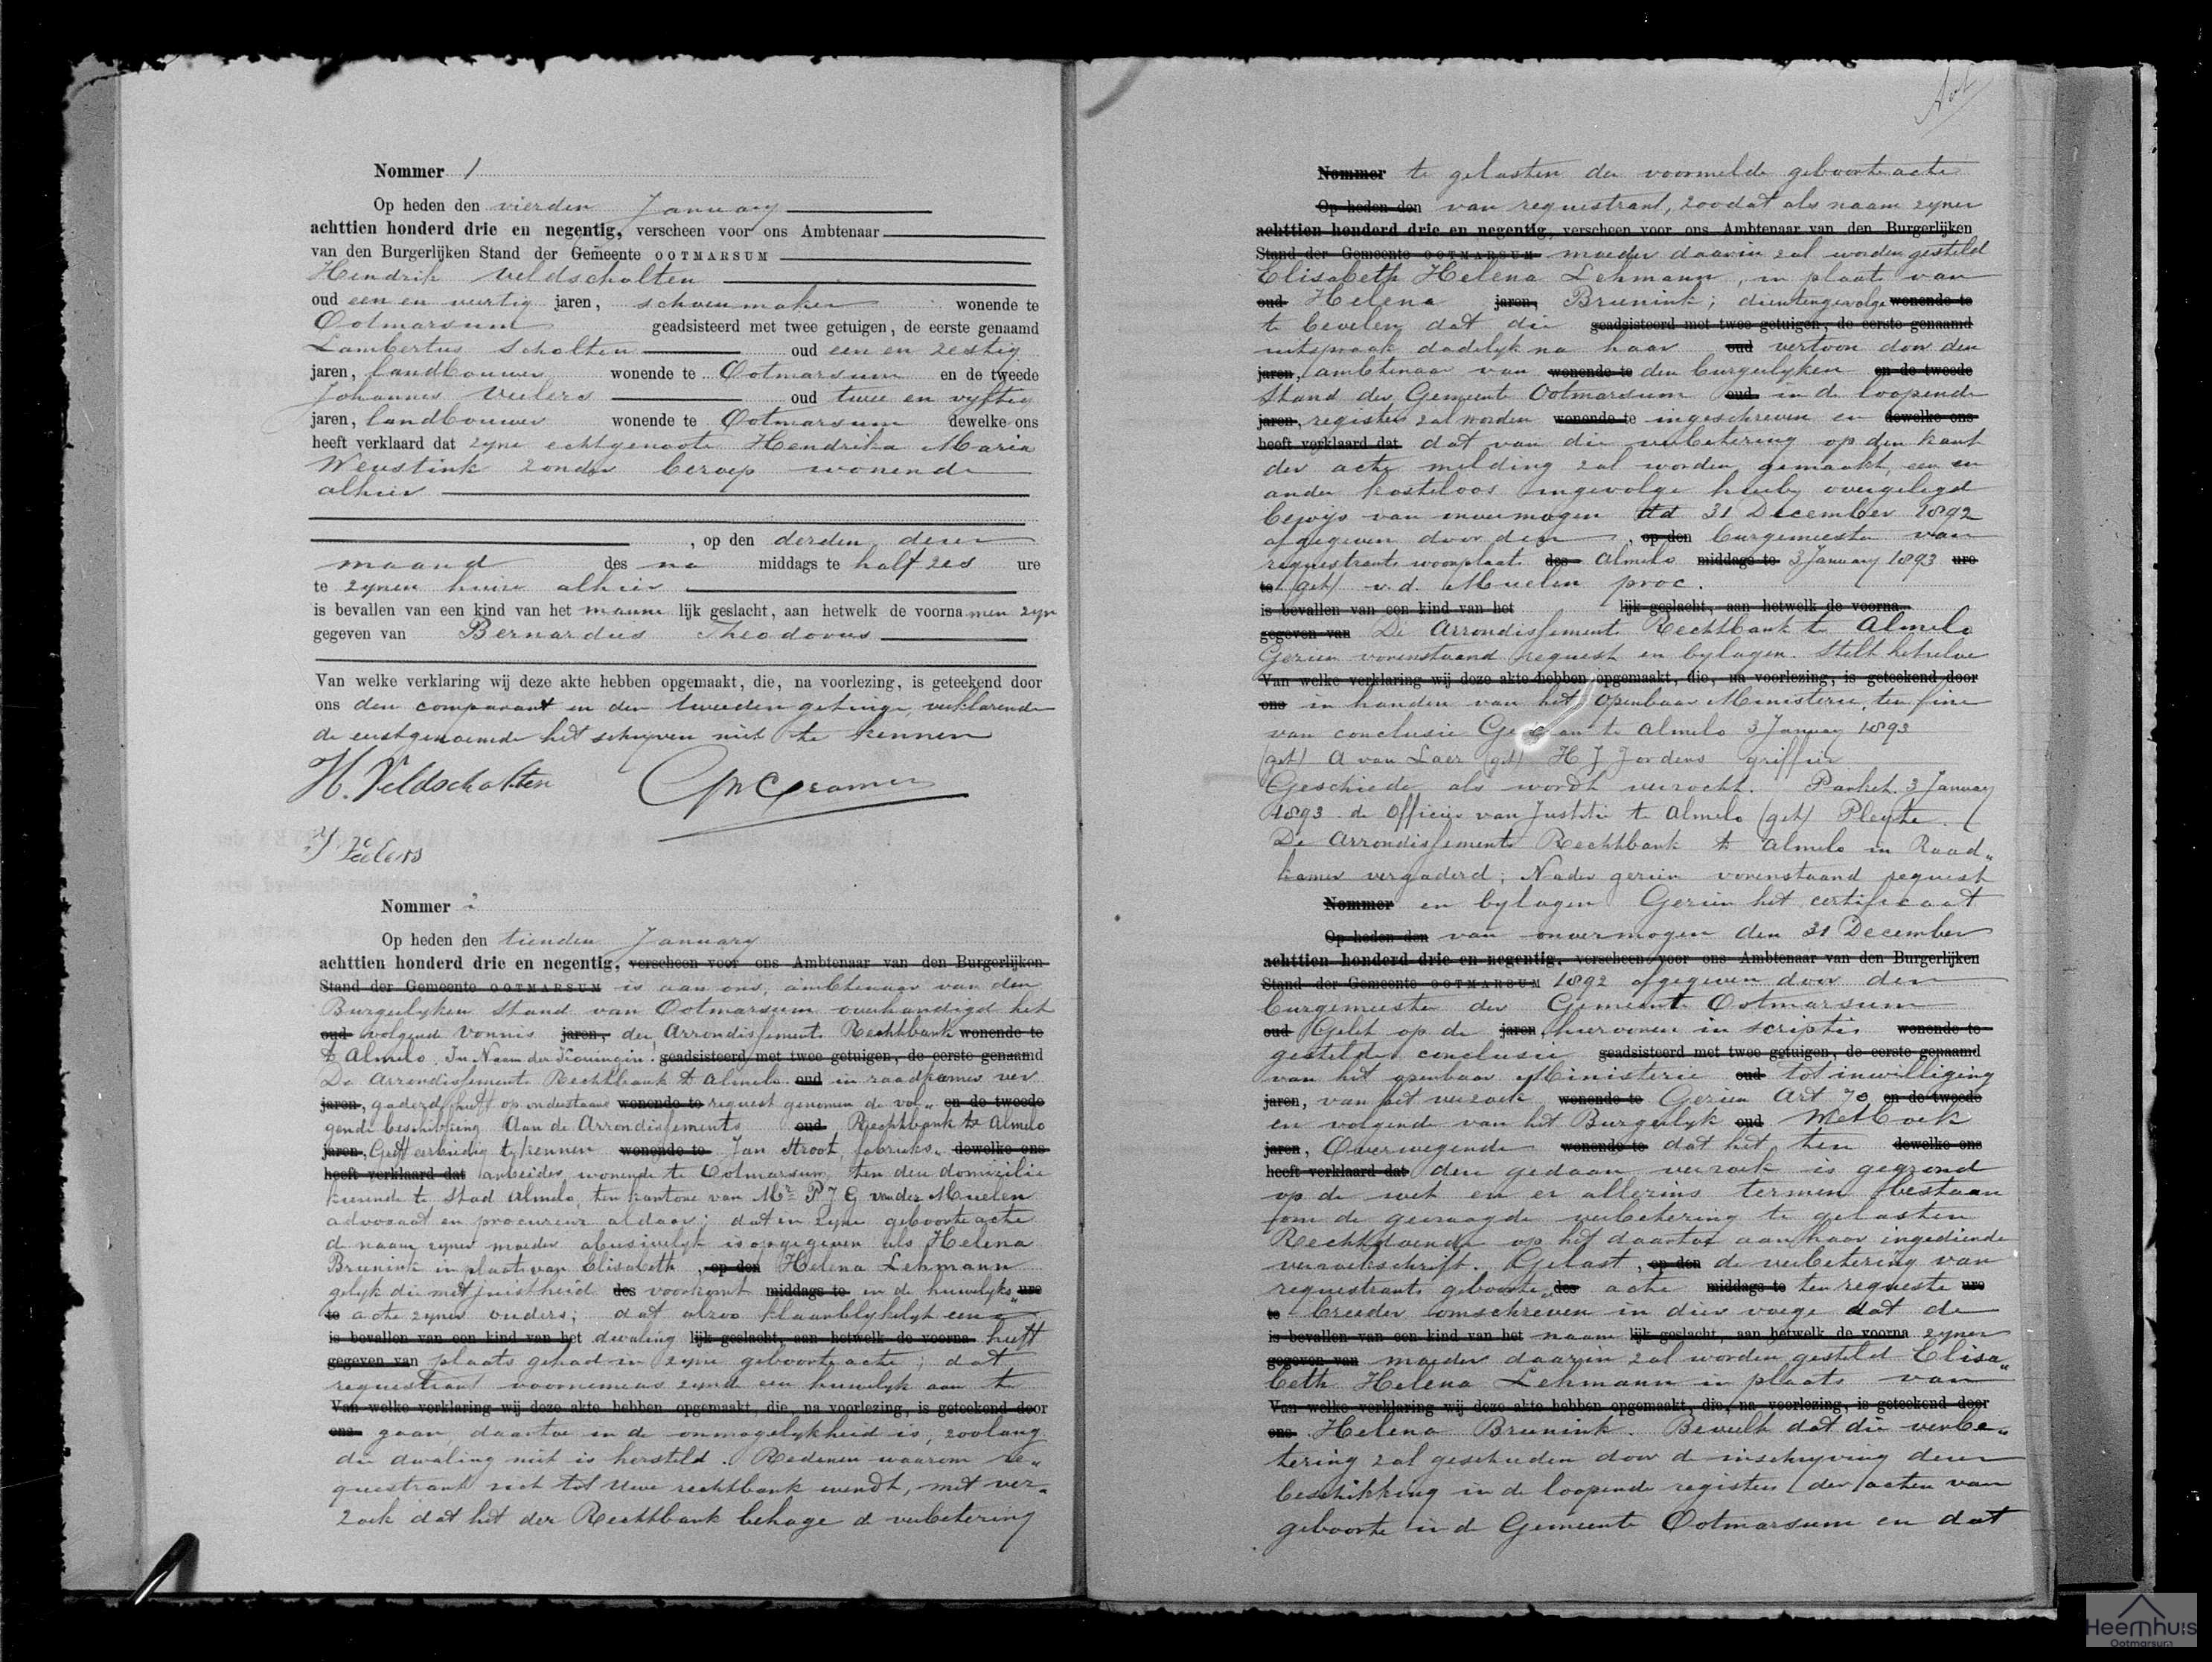 Nommer 1
Op heden den vierden January
achttien honderd drie en negentig, verscheen voor ons Ambtenaar
van den Burgerlijken Stand der Gemeente OOTMARSUM
Hendrik Veldscholten
oud een en veertig jaren, schoenmaker wonende te
Ootmarsum geadsisteerd met twee getuigen, de eerste genaamd
Lambertus Scholten oud een en zestig
jaren, landbouwer wonende te Ootmarsum en de tweede
Johannes Velers oud twee en vyftig
jaren, landbouwer wonende te Ootmarsum dewelke ons
heeft verklaard dat zyne echtgenoote Hendrika Maria
Weustink zonder beroep wonende
alhier
, op den derden dezer
maand des na middags te half zes ure
te zynen huize alhier
is bevallen van een kind van het manne lijk geslacht, aan hetwelk de voorna men zyn
gegeven van Bernardus Theodorus
Van welke verklaring wij deze akte hebben opgemaakt, die, na voorlezing, is geteekend door
ons den comparant en den tweeden getuige, verklarende
de eerstgenoemde het schryven niet te kennen
H. Veldscholten
J Velers
Nommer 2
Op heden den tienden January
achttien honderd drie en negentig, verscheen voor ons Ambtenaar van den Burgerlijken
Stand der Gemeente OOTMARSUM is aan ons, ambtenaar van den
Burgerlyken Stand van Ootmarsum overhandigd het
oud volgend vonnis jaren, der Arrondissements Rechtbank wonende te
te Almelo. In Naam der Koningin. geadsisteerd met twee getuigen, de eerste genaamd
De Arrondissements Rechtbank te Almelo oud in raadkamer ver
jaren, gaderd heeft op onderstaand wonende te request genomen de vol„ en de tweede
gende beschikking Aan de Arrondissements oud Rechtbank te Almelo
jaren, Geeft eerbiedig te kennen wonende te Jan Stroot, fabrieks„ dewelke ons
heeft verklaard dat arbeider, wonende te Ootmarsum, ten deze domicilie
kiezende te Stad Almelo, ten kantore van Mr P J G van der Muelen
advocaat en procureur aldaar; dat in zyne geboorte acte
de naam zyner moeder abusivelyk is opgegeven als Helena
Brunink in plaats van Elisabeth , op den Helena Lehmann
gelyk die met juistheid des voorkomt middags te in de huwelyks„ ure
te acte zyner ouders; dat alzoo klaarblykelyk eene
is bevallen van een kind van het dwaling lijk geslacht, aan hetwelk de voorna heeft
gegeven van plaats gehad in zyne geboorte acte; dat
requestrant voornemens zynde een huwelyk aan te
Van welke verklaring wij deze akte hebben opgemaakt, die, na voorlezing, is geteekend door
ons gaan, daartoe in de onmogelykheid is, zoolang
die dwaling niet is hersteld. Redenen waarom re„
questrant zich tot Uwe rechtbank wendt, met ver„
zoek dat het der Rechtbank behage de verbetering
Nommer te gelasten der voormelde geboorte acte
Op heden den van requestrant, zoodat als naam zyner
achttien honderd drie en negentig, verscheen voor ons Ambtenaar van den Burgerlijken
Stand der Gemeente OOTMARSUM moeder daarin zal worden gesteld
Elisabeth Helena Lehmann, in plaats van
oud Helena jaren, Brunink; dientengevolge wonende te
te bevelen dat die geadsisteerd met twee getuigen, de eerste genaamd
uitspraak dadelyk na haar oud vertoon door den
jaren, ambtenaar van wonende te den burgerlyken en de tweede
Stand der Gemeente Ootmarsum oud in de loopende
jaren, registers zal worden wonende te ingeschreven en dewelke ons
heeft verklaard dat dat van die verbetering op den kant
der acte melding zal worden gemaakt, een en
ander kosteloos ingevolge hierby overgelegd
bewys van onvermogen dd 31 December 1892
afgegeven door den , op den burgemeester van
requestrants woonplaats des Almelo middags te 3 January 1893 ure
te (get) v. d. Muelen proc.
is bevallen van een kind van het lijk geslacht, aan hetwelk de voorna
gegeven van De Arrondissements Rechtbank te Almelo
Gezien vorenstaand request en bylagen. Stelt hetzelve
Van welke verklaring wij deze akte hebben opgemaakt, die, na voorlezing, is geteekend door
ons in handen van het Openbaar Ministerie, ten fine
van conclusie Gedaan te Almelo 3 January 1893
(get) A van Laer (get) H J Jordens griffier
Geschiede als wordt verzocht. Parket. 3 January
1893 de Officier van Justitie te Almelo (get) Pleyte.
De Arrondissements Rechtbank te Almelo in Raad„
kamer vergaderd; Nader gezien vorenstaand request
Nommer en bylagen Gezien het certificaat
Op heden den van onvermogen den 31 December
achttien honderd drie en negentig, verscheen voor ons Ambtenaar van den Burgerlijken
Stand der Gemeente OOTMARSUM 1892 afgegeven door den
burgemeester der Gemeente Ootmarsum
oud Gelet op de jaren hiervoren in scriptis wonende te
gestelde conclusie geadsisteerd met twee getuigen, de eerste genaamd
van het openbaar Ministerie oud tot inwilliging
jaren, van het verzoek wonende te Gezien Art 70 en de tweede
en volgende van het Burgerlyk oud Wetboek
jaren, Overwegende wonende te dat het ten dewelke ons
heeft verklaard dat deze gedaan verzoek is gegrond
op de wet en er allezins termen bestaan
om de gevraagde verbetering te gelasten
Rechtdoende op het daartoe aan haar ingediende
verzoekschrift. Gelast, op den de verbetering van
requestrants geboorte„ des acte middags te ten requeste ure
te breeder omschreven in dier voege dat de
is bevallen van een kind van het naam lijk geslacht, aan hetwelk de voorna zyner
gegeven van moeder daarin zal worden gesteld Elisa„
beth Helena Lehmann in plaats van
Van welke verklaring wij deze akte hebben opgemaakt, die, na voorlezing, is geteekend door
ons Helena Brunink. Beveelt dat die verbe„
tering zal geschieden door de inschryving dezer
beschikking in de loopende registers der acten van
geboorte in de Gemeente Ootmarsum en dat
Heemhuis
Ootmarsum